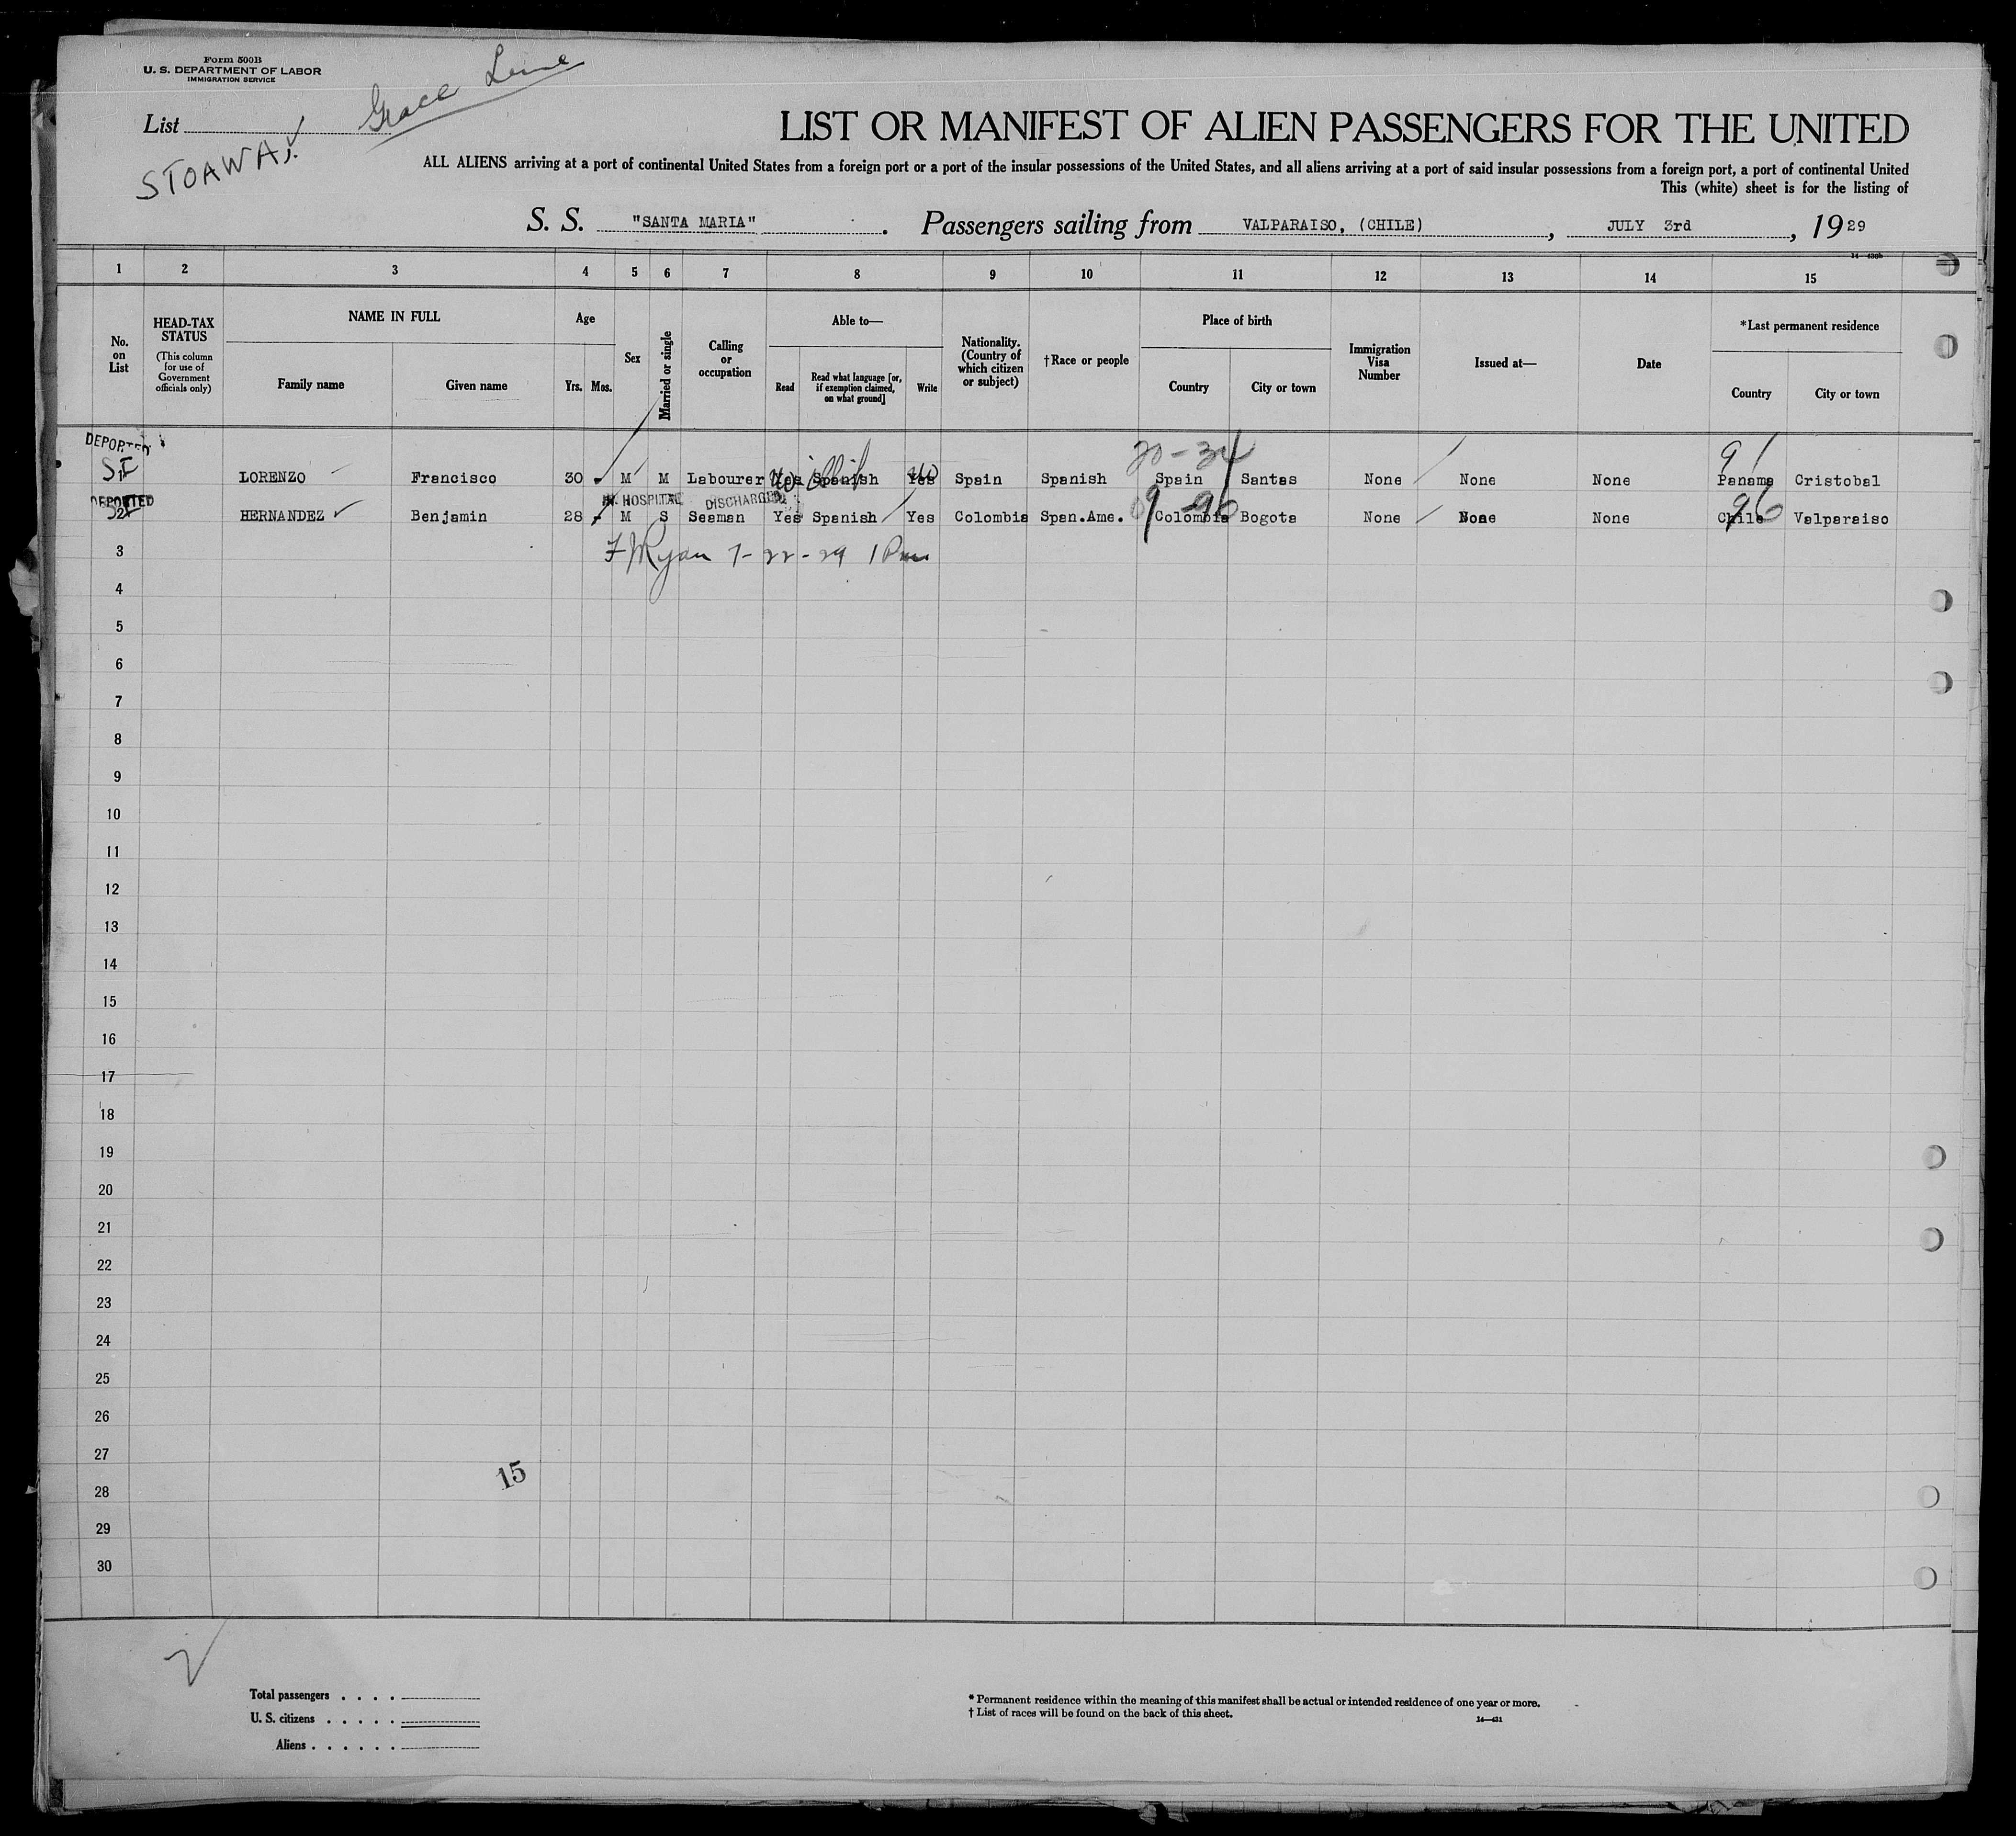 Form 500B
U. S. DEPARTMENT OF LABOR
IMMIGRATION SERVICE
Grace Line
List
STOAWAY.
LIST OR MANIFEST OF ALIEN PASSENGERS FOR THE UNITED
ALL ALIENS arriving at a port of continental United States from a foreign port or a port of the insular possessions of the United States, and all aliens arriving at a port of said insular possessions from a foreign port, a port of continental United
This (white) sheet is for the listing of
S. S. "SANTA MARIA" . Passengers sailing from VALPARAISO, (CHILE) , JULY 3rd , 1929
14—430b
1 2 3 4 5 6 7 8 9 10 11 12 13 14 15
No. on List
HEAD-TAX STATUS
(This column for use of Government officials only)
NAME IN FULL
Family name Given name
Age
Yrs. Mos.
Sex
Married or single
Calling or occupation
Able to—
Read
Read what language [or, if exemption claimed, on what ground]
Write
Nationality. (Country of which citizen or subject)
†Race or people
Place of birth
Country City or town
Immigration Visa Number
Issued at—
Date
*Last permanent residence
Country City or town
DEPORTED
20-34 91
1 LORENZO Francisco 30 M M Labourer Yes No Spanish Yes No Spain Spanish Spain Santas None None None Panama Cristobal
DEPORTED IN HOSPITAL DISCHARGED
96 96
2 HERNANDEZ Benjamin 28 M S Seaman Yes Spanish Yes Colombia Span.Ame. Colombia Bogota None None None Chile Valparaiso
3 F Ryan 7-22-29 1 Pm
4
5
6
7
8
9
10
11
12
13
14
15
16
17
18
19
20
21
22
23
24
25
26
27
15
28
29
30
2
Total passengers . . . .
U. S. citizens . . . . .
Aliens . . . . . .
* Permanent residence within the meaning of this manifest shall be actual or intended residence of one year or more.
† List of races will be found on the back of this sheet.
14—431